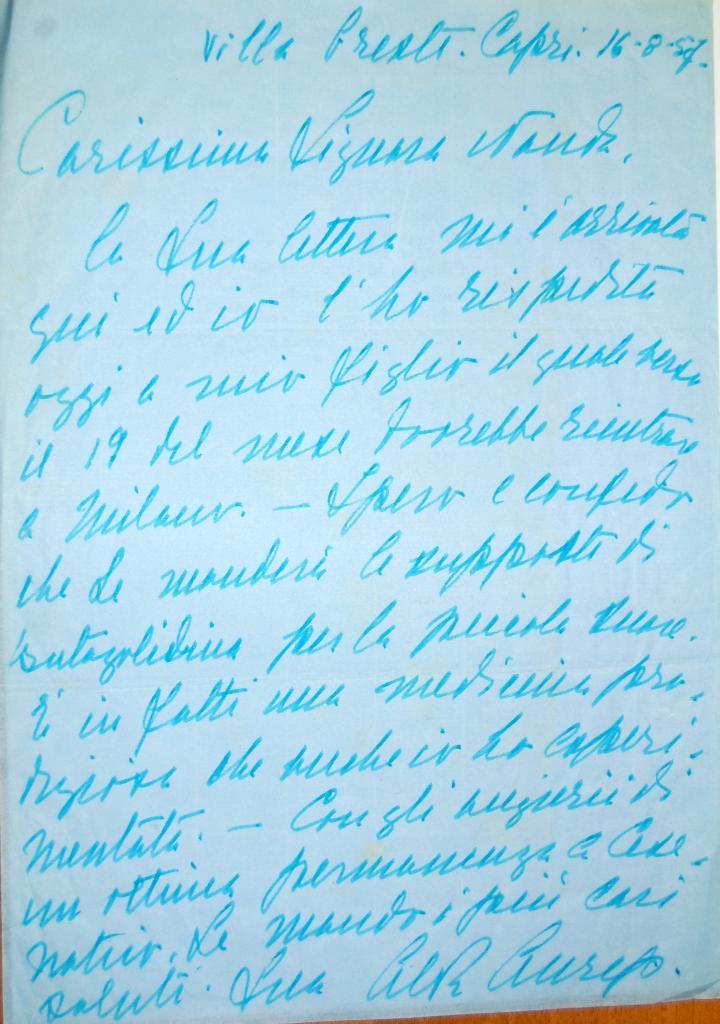 Villa Oreste. Capri. 16-8-57.
Carissima Signora Nanda,
la Sua lettera mi è arrivata
qui ed io l'ho rispedita
oggi a mio figlio il quale verso
il 19 del mese dovrebbe rientrare
a Milano. — Spero e confido
che Le manderà le supposte di
per la piccola suore.
È in fatti una medicina pro-
digiosa che anche io ho esperi-
mentata. — Con gli augurii di
un ottima permanenza a Cese-
natico, Le mando i più cari
saluti. Sua